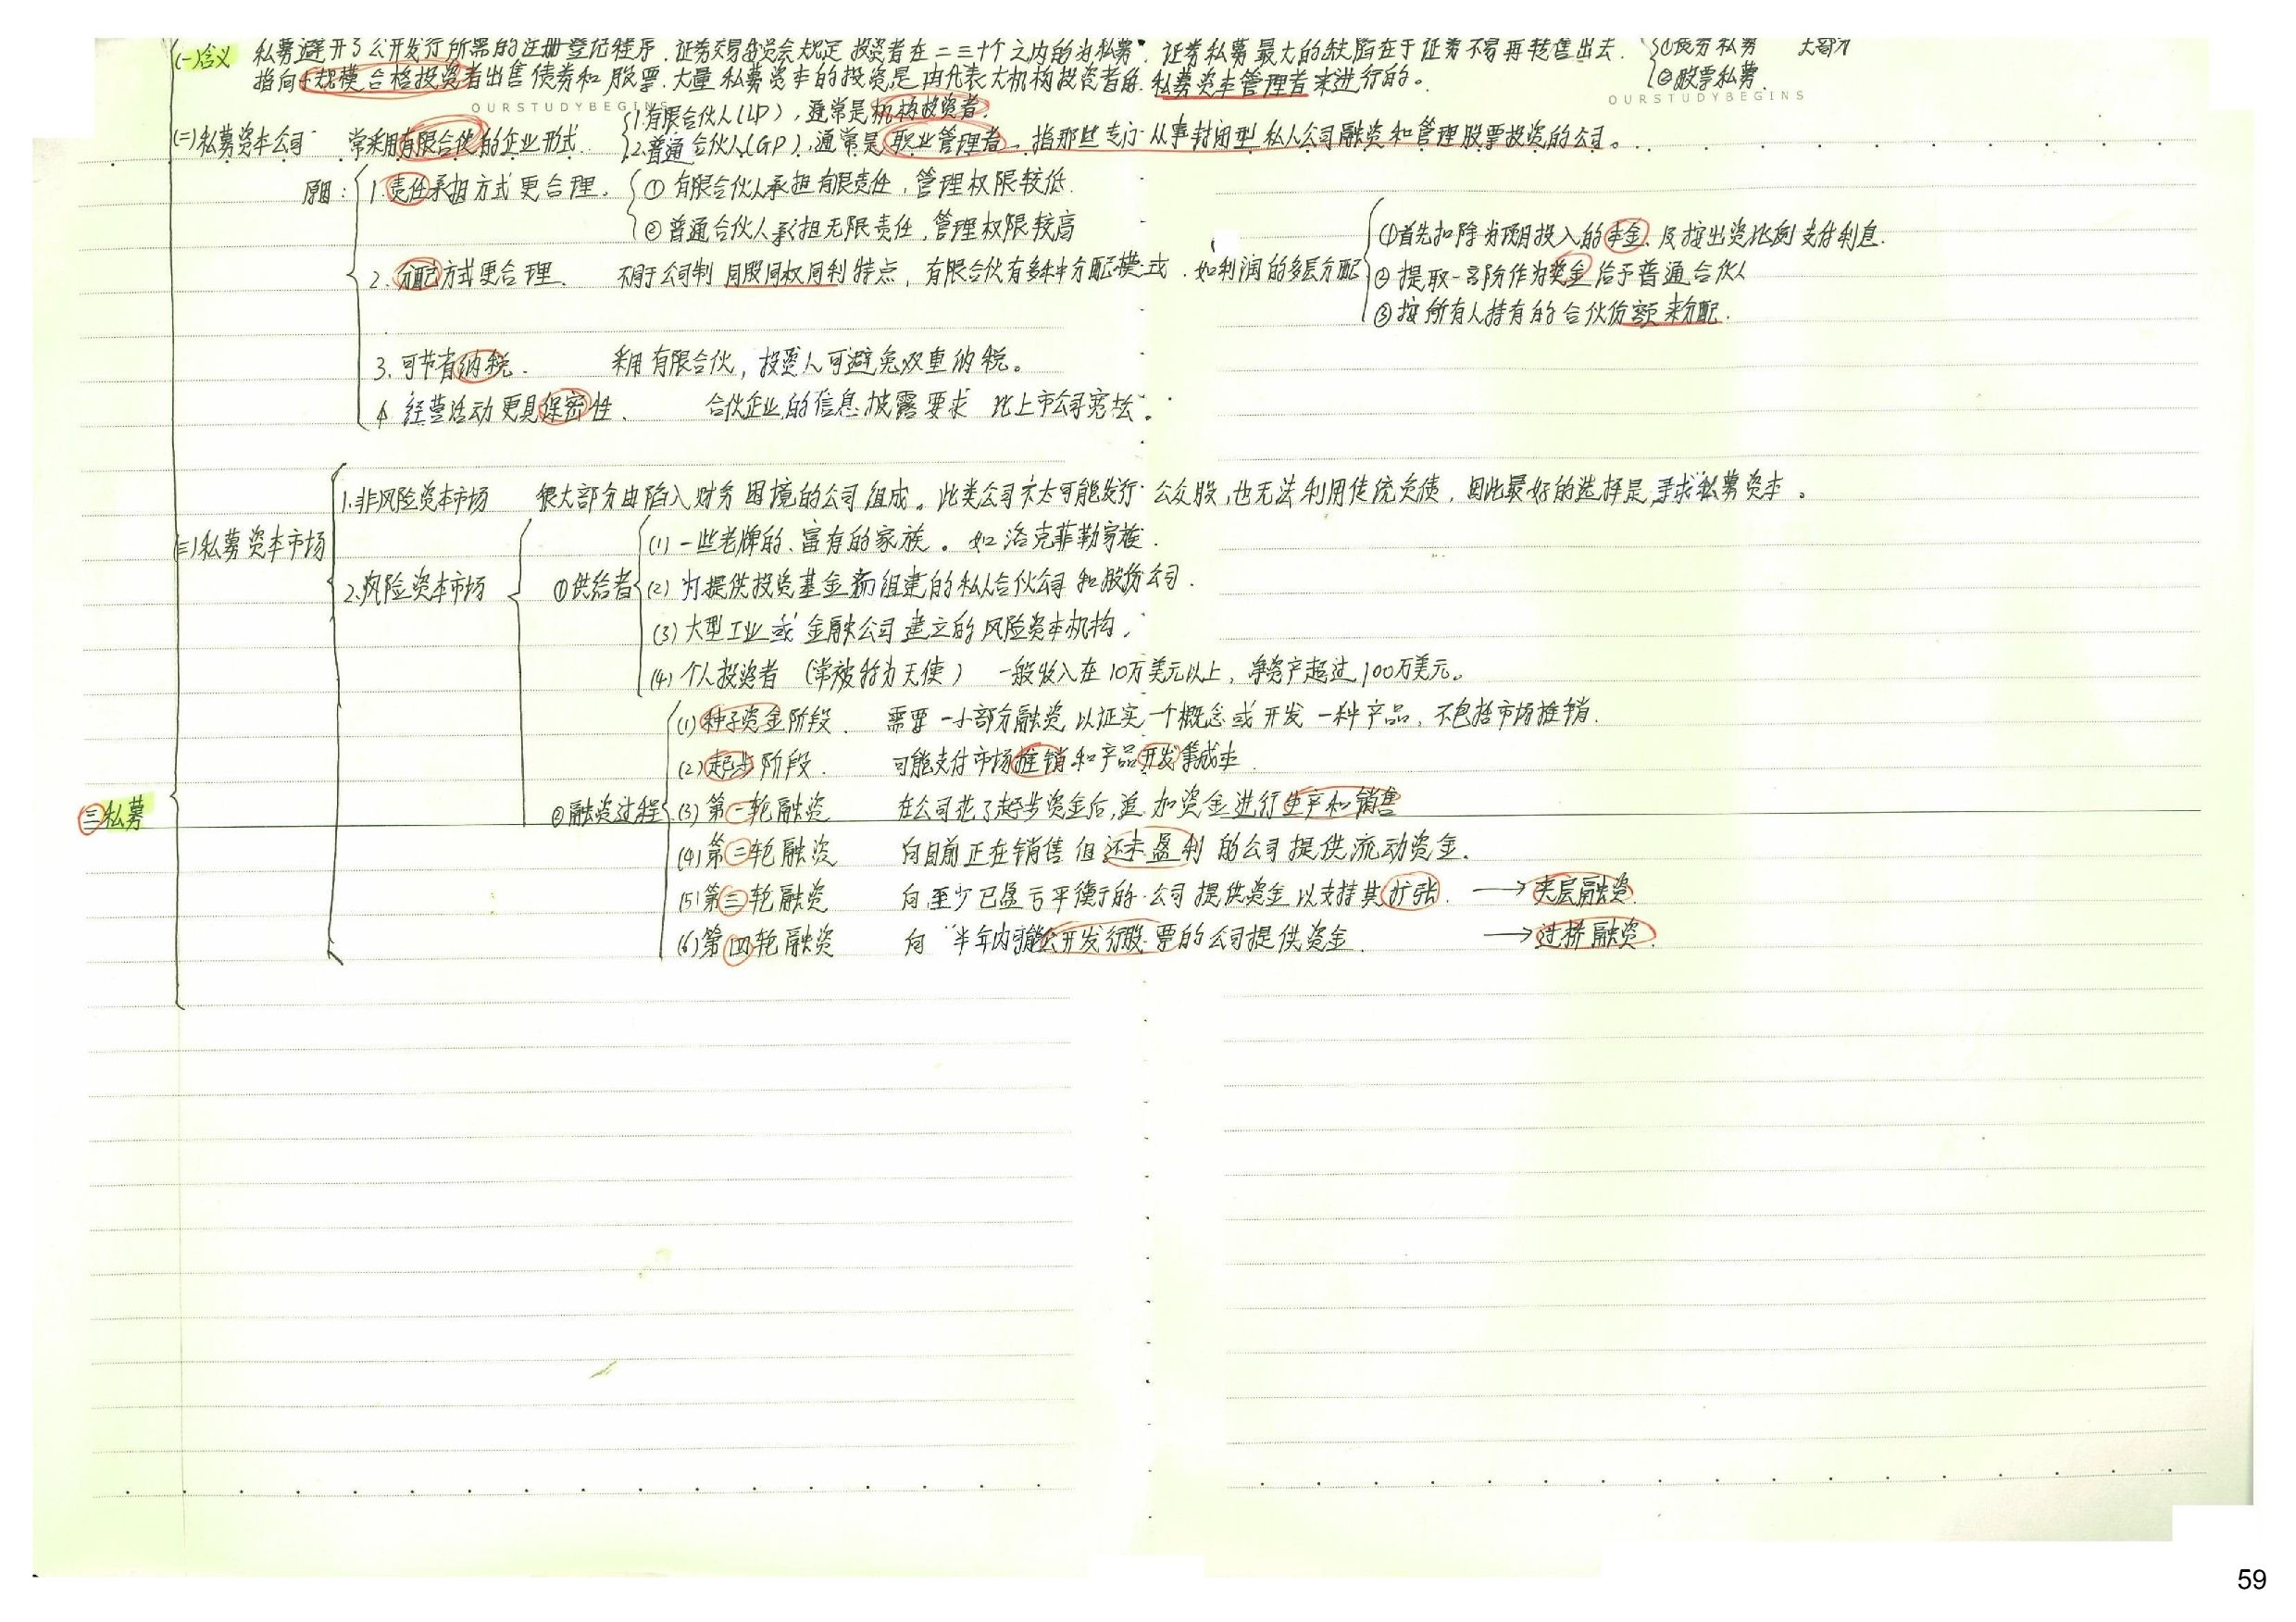 (一)含义 私募避开了公开发行所需的注册登记程序.证券交易委员会规定 投资者在二三十个之内的为私募. 证券私募最大的缺陷在于证券不易再转售出去. ①债券私募 大部分
指向小规模合格投资者出售债券和股票.大量私募资本的投资是由代表大机构投资者的 私募资本管理者来进行的。 ②股票私募.
OURSTUDYBEGINS OURSTUDYBEGINS
1.有限合伙人(LP),通常是机构投资者.
(二)私募资本公司 常采用有限合伙的企业形式. 2.普通合伙人(GP),通常是职业管理者. 指那些专门从事封闭型私人公司融资和管理股票投资的公司。
原因: 1.责任承担方式更合理. ①有限合伙人承担有限责任,管理权限较低.
②普通合伙人承担无限责任,管理权限较高
①首先扣除为项目投入的本金、及按出资比例支付利息.
2.分配方式更合理. 不同于公司制 同股同权同利特点,有限合伙有多种分配模式.如利润的多层分配 ②提取一部分作为奖金给予普通合伙人
③按所有人持有的合伙份额来分配.
3.可节省纳税. 采用有限合伙,投资人可避免双重纳税。
4.经营活动更具保密性. 合伙企业的信息披露要求 比上市公司宽松.
(三)私募资本市场
1.非风险资本市场 很大部分由陷入财务困境的公司组成。此类公司不太可能发行公众股,也无法利用传统负债,因此最好的选择是寻求私募资本。
2.风险资本市场
①供给者
(1)一些老牌的、富有的家族。如洛克菲勒家族.
(2)为提供投资基金而组建的私人合伙公司和股份公司.
(3)大型工业或金融公司建立的风险资本机构.
(4)个人投资者 (常被称为天使) 一般收入在10万美元以上,净资产超过100万美元。
②融资过程
(1)种子资金阶段. 需要一小部分融资以证实一个概念或开发一种产品,不包括市场推销.
(2)起步阶段. 可能支付市场推销和产品开发等成本.
三私募
(3)第一轮融资 在公司花了起步资金后,追加资金进行生产和销售
(4)第二轮融资 向目前正在销售但还未盈利的公司提供流动资金.
(5)第三轮融资 向至少已盈亏平衡的公司提供资金以支持其扩张. → 夹层融资.
(6)第四轮融资 向半年内可能公开发行股票的公司提供资金. → 过桥融资.
59